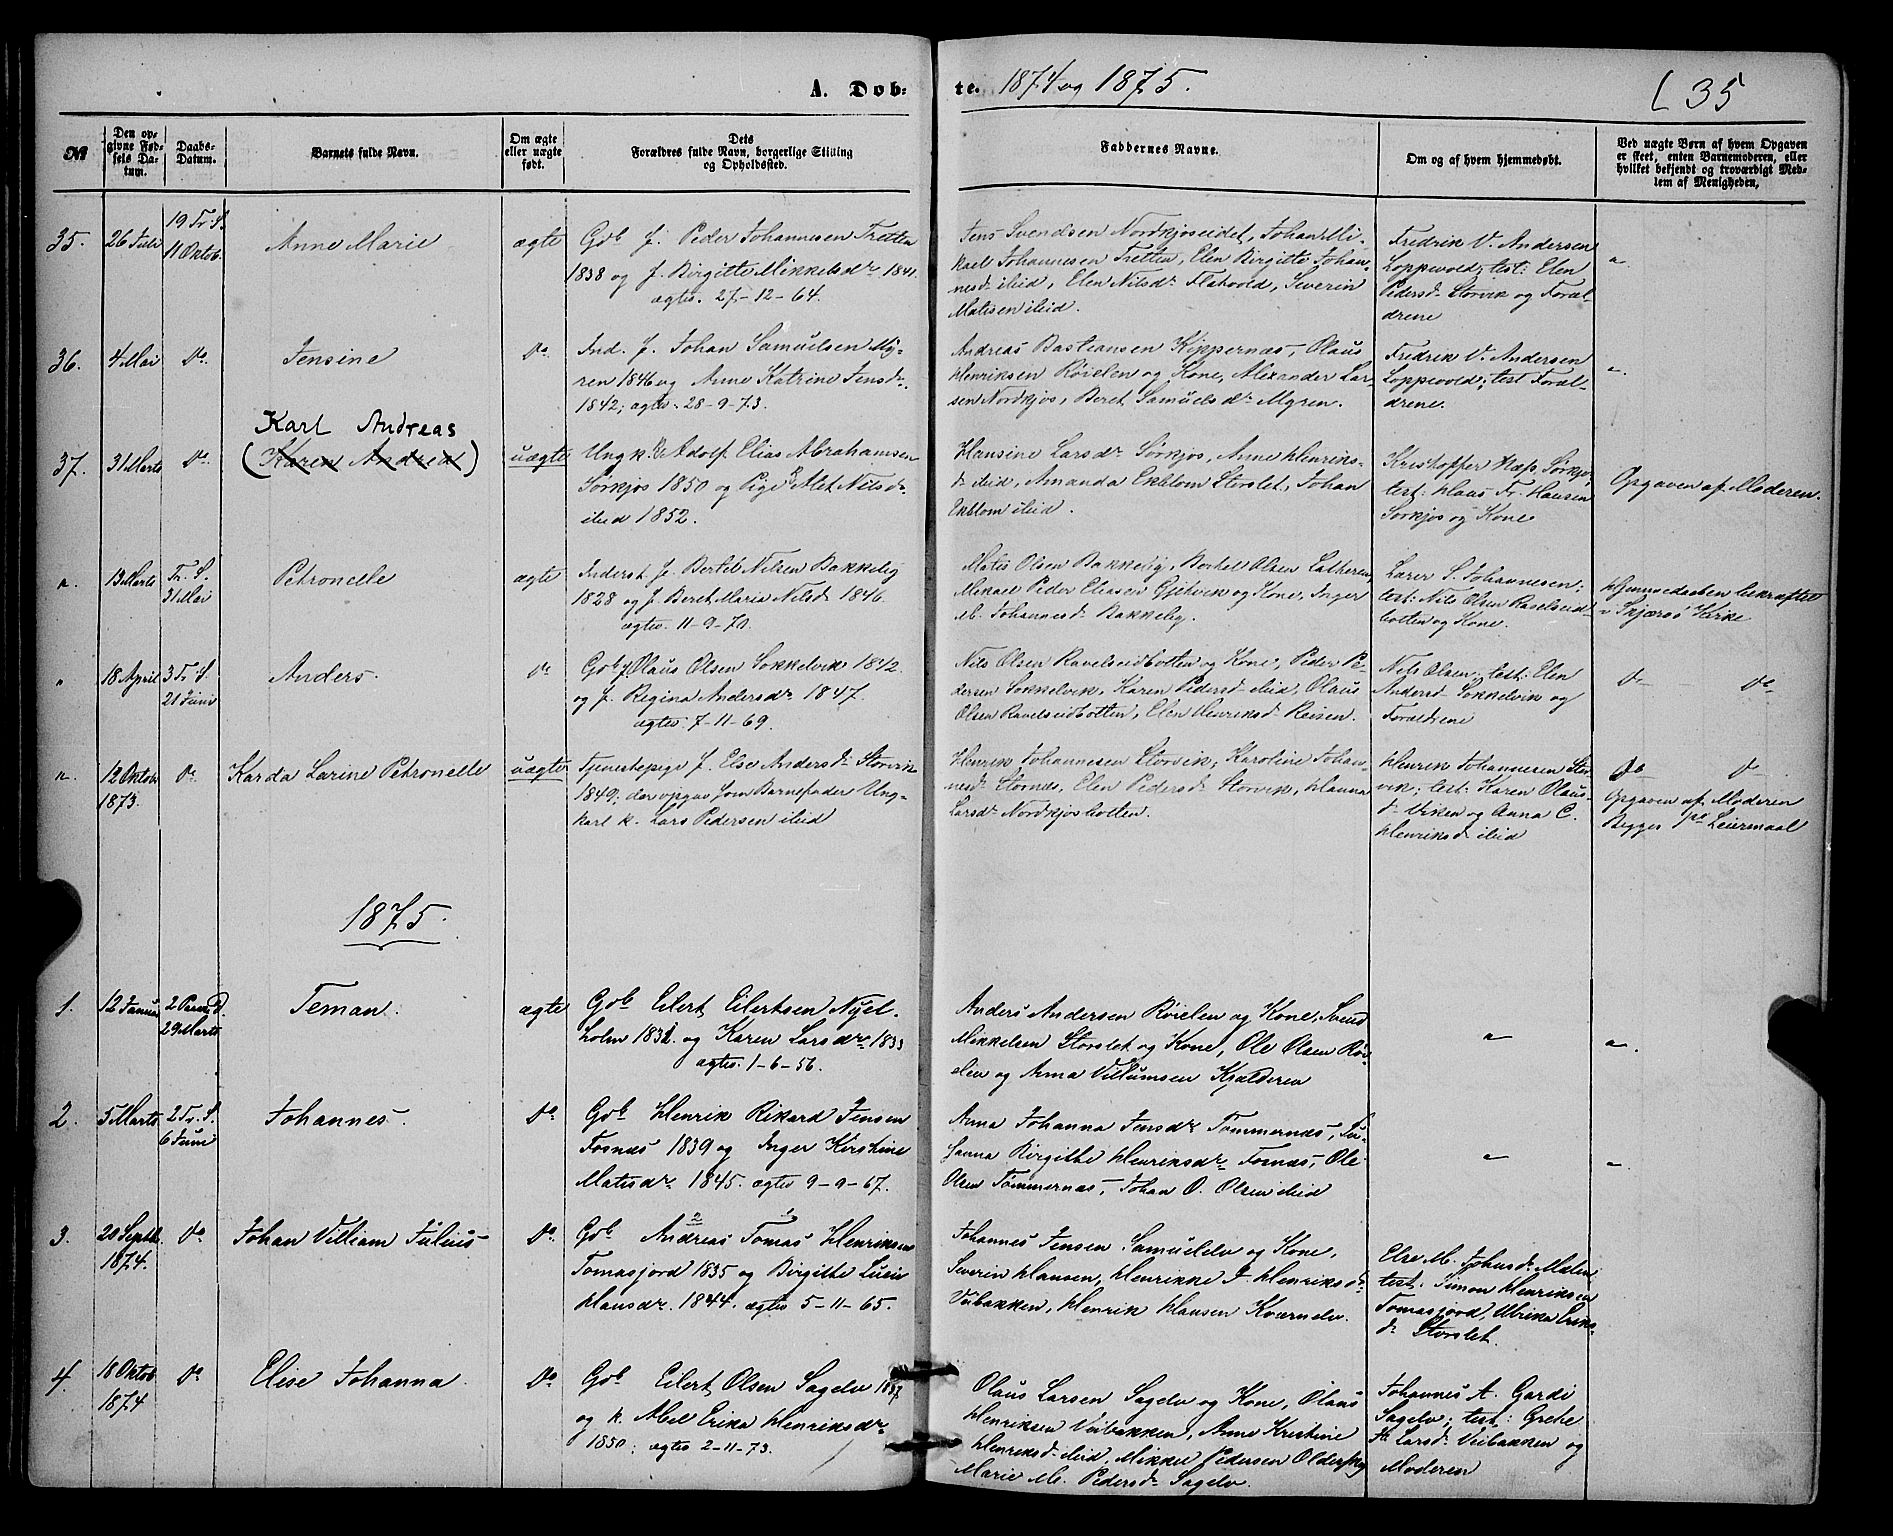 A. Døbte. 1874 og 1875.
L 35
No
Den opgivne Fødsels Datum.
Daabs-Datum.
Barnets fulde Navn.
Om ægte eller uægte født.
Dets Forældres fulde Navn, borgerlige Stilling og Opholdssted.
Faddernes Navne.
Om og af hvem hjemmedøbt.
Ved uægte Børn af hvem Opgaven er skeet, enten Barnemoderen, eller hvilket bekjendt og troværdigt Medlem af Menigheden.
35. 26 Juli 19 Tr. S. 11 Oktob. Anne Marie ægte
Gdb J. Peder Johannesen Tretten
1838 og J. Birgitte Mikkelsdr 1841.
ægtev. 27-12-64.
Jens Svendsen Nordkjoseidet, Johan Mi-
kael Johannesen Tretten, Elen Birgitte Johan-
nesd. ibid, Elen Nilsdr Flatvold, Severin
Matisen ibid.
Fredrik V. Andersen
Loppevold; test: Elen
Pedersd. Storvik og Foræl-
drene
"
36. 4 Mai Do Jensine Do
Ind. J. Johan Samuelsen My-
ren 1846 og Anne Katrine Jensdr.
1842; ægtev. 28-9-73.
Andreas Bastiansen Kippernæs, Olaus
Henriksen Røielen og Kone, Alexander Lar-
sen Nordkjos, Beret Samuelsdr Myren.
Fredrik V. Andersen
Loppevold; test Foræl-
drene.
"
Karl Andreas
37. 31 Marts Do (Karen Andrea) uægte
Ungk. Adolf Elias Abrahamsen
Sørkjos 1850 og Pige Alet Nilsd.
ibid 1852.
Hansine Larsdr Sørkjos, Anne Henriks-
d. ibid, Amanda Ekblom Storslet, Johan
Ekblom ibid.
Kristoffer Hæp. Sørkjos,
test: Hans Fr. Hansen
Sørkjos og Kone
Opgaven af Moderen.
" 13 Marts Tr. S. 31 Mai Petronelle ægte
Inderst J. Bertel Nilsen Bakkeby
1828 og J. Beret Maria Nilsd. 1846.
ægtev. 11-9-70.
Matis Olsen Bakkeby, Berhel Olsen Latheren,
Mikael Peder Eliasen Gjetvik og Kone, Inger
M. Johannesd. Bakkeby.
Lærer S. Johannesen;
test: Nils Olsen Ravelseid-
botten og Kone.
Hjemmedaaben bekræftet
i Skjærvø Kirke
" 18 April 3 Tr. S. 21 Juni Anders. Do
Gdb J. Olaus Olsen Sokkelvik 1842
og J. Regina Andersdr 1847.
ægtev. 7-11-69.
Nils Olsen Ravelseidbotten og Kone, Peder Pe-
dersen Sokkelvik, Karen Pedersd. ibid, Olaus
Olsen Ravelseidbotten, Elen Henriksd. Reisen.
Nils Olsen; test: Elen
Andersd. Sokkelvik og
Forældrene
Do Do
" 12 Oktob. 1873. Do Karda Larine Petronelle uægte
Tjenestepige J. Else Andersd. Storvik
1849; der opgav som Barnefader Ung-
karl k. Lars Pedersen ibid
Henrik Johannesen Storvik, Karoline Johan-
nesd. Stornæs, Elen Pedersd. Storvik, Hanna
Larsd. Nordkjosbotten.
Henrik Johannesen Stor-
vik; test: Karen Olaus-
d. Viken og Anna C.
Henriksd. ibid
Do Do
Opgaven af Moderen
Begges 1ste Leiermaal
1875.
1. 12 Januar 2 Paaskd. 29 Marts Teman. ægte
Gdb Eilert Eilertsen Nyel-
holm 1831. og Karen Larsdr 1833
ægtev. 1-6-56.
Anders Andersen Røielen og Kone, Svend
Mikkelsen Storslet og Kone, Ole Olsen Røi-
elen og Anna Villumsen Kjælderen
" "
2. 5 Marts 2 Tr. S. 6 Juni Johannes. Do
Gdb Henrik Rikard Jensen
Fosnæs 1839 og Inger Kirstine
Matisdr. 1845. ægtev 9-9-67.
Anna Johanna Jensdr Tømmernæs, Su-
sanna Birgitte Henriksdr Fosnæs, Ole
Olsen Tømmernæs, Johan O. Olsen ibid
" "
3. 20 Septb. 1874. Do Johan Villiam Julius Do
2 1
Gdb Andreas Tomas Henriksen
Tomasjord 1835 og Birgithe Lucie
Hansdr. 1844. ægtev 5-11-65.
Johannes Jensen Samuelelv og Kone,
Severin Hansen, Henrikke J. Henriksd.
Veibakken, Henrik Hansen Kværnelv.
Else M. Johnsdr Moen
test. Simon Henriksen
Tomasjord, Ulrika Eriks-
d. Storslet.
4. 18 Oktob 1874 Do Elise Johanna. Do
Gdb Eilert Olsen Sagelv 1837
og k. Abel Erika Henriksdr
1850; ægtev 2-11-73.
Olaus Larsen Sagelv og Kone, Olaus
Henriksen Veibakken, Anne Kristine
Henriksd. ibid, Mikkel Pedersen Olderskog
Marie M. Pedersd. Sagelv.
Johannes A. Gardi
Sagelv; test: Grethe
H. Larsd. Veibakken og
Moderen